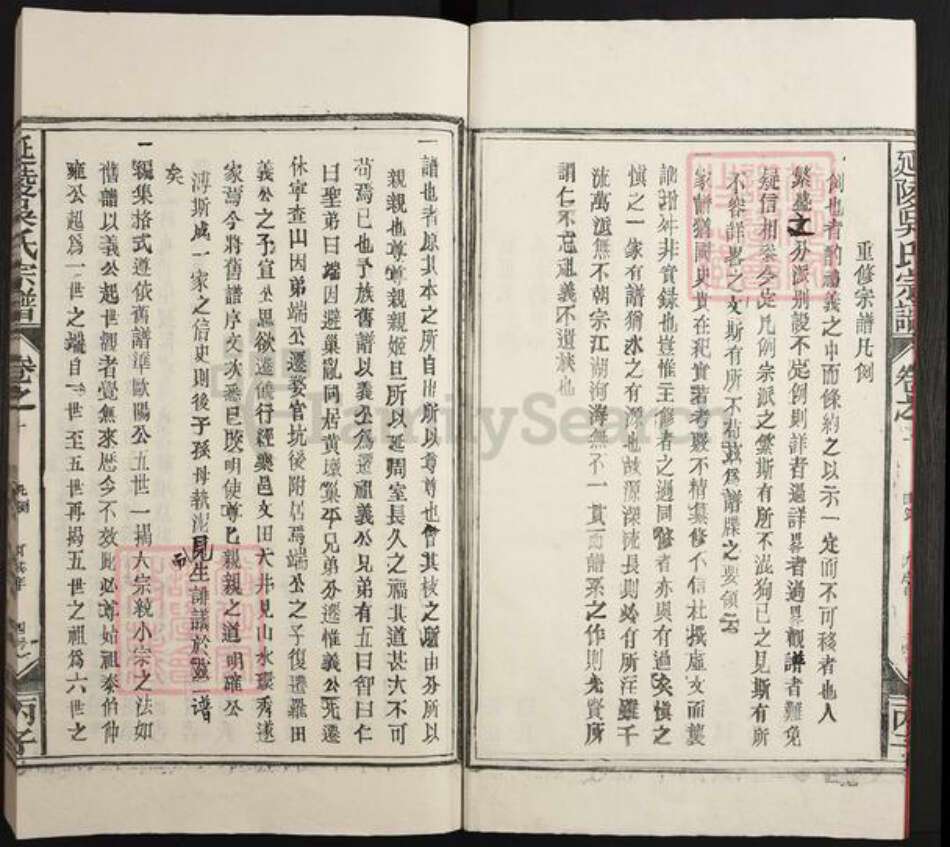 重修宗譜凡例
例也者酌禮義之中而條約之以示一定而不可移者也人
繁墓之分派別設不定例則詳者過詳畧者過畧觀譜者難免
疑信相叅今定凡例宗派之繁斯有所不混狥己之見斯有所
不容詳畧之文斯有所不苟兹為譜牒之要領云
一家譜猶國史貴在祀實若考覈不精纂修不信杜撰虛文而襲
訛增外非實録也豈惟主修者之過同修者亦與有過矣慎之
慎之一家有譜猶水之有源也故源深流長則必有所汪雖千
流萬派無不朝宗江湖河海無不一貫而譜系之作則先賢所
謂仁不忘祖義不遺族也
一譜也者原其本之所自出所以尊尊也會其枝之所由分所以
親親也尊尊親親姬旦所以延周室長久之福其道甚大不可
苟焉已也予族舊譜以義公為遷祖義公兄弟有五曰智曰仁
曰聖弟曰端因避巢亂同居黄墩巢平兄弟分遷惟義公先遷
休寧查山因弟端公遷婺官坑後附居焉端公之子復遷羅田
義公之子宣公思欲遷儀行經樂邑文田大井見山水環秀遂
家焉今將舊譜序文次悉已敗明使尊尊親親之道明確公
溥斯成一家之信史則後子孫毋執泥見生誹議於茲譜
而
矣
一編集格式遵依舊譜準歐陽公五世一揭大宗統小宗之法如
舊譜以義公起世観者覺無來歷今不效此必尊始祖泰伯仲
雍公起為一世之端自一世至五世再揭五世之祖為六世之
延陵吳氏宗譜
卷之一
丙子
延陵吳氏宗譜
卷之一
丙子
FamilySearch